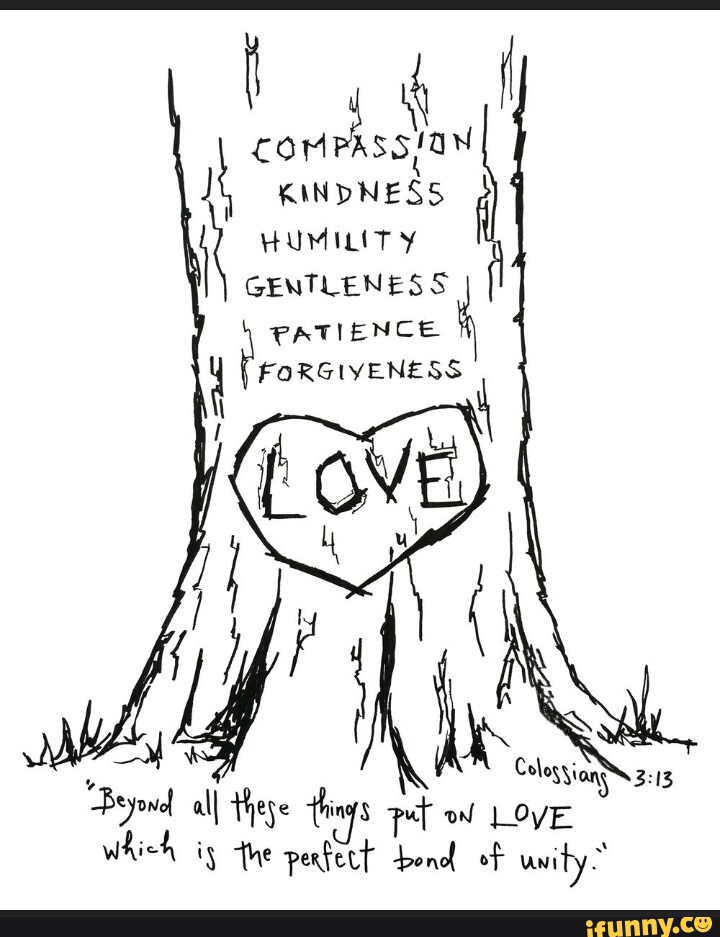 COMPASSION
KINDNESS
HUMILITY
GENTLENESS
PATIENCE
FORGIVENESS
LOVE
Colossians 3:13
"Beyond all these things put on LOVE
which is the perfect bond of unity."
ifunny.co